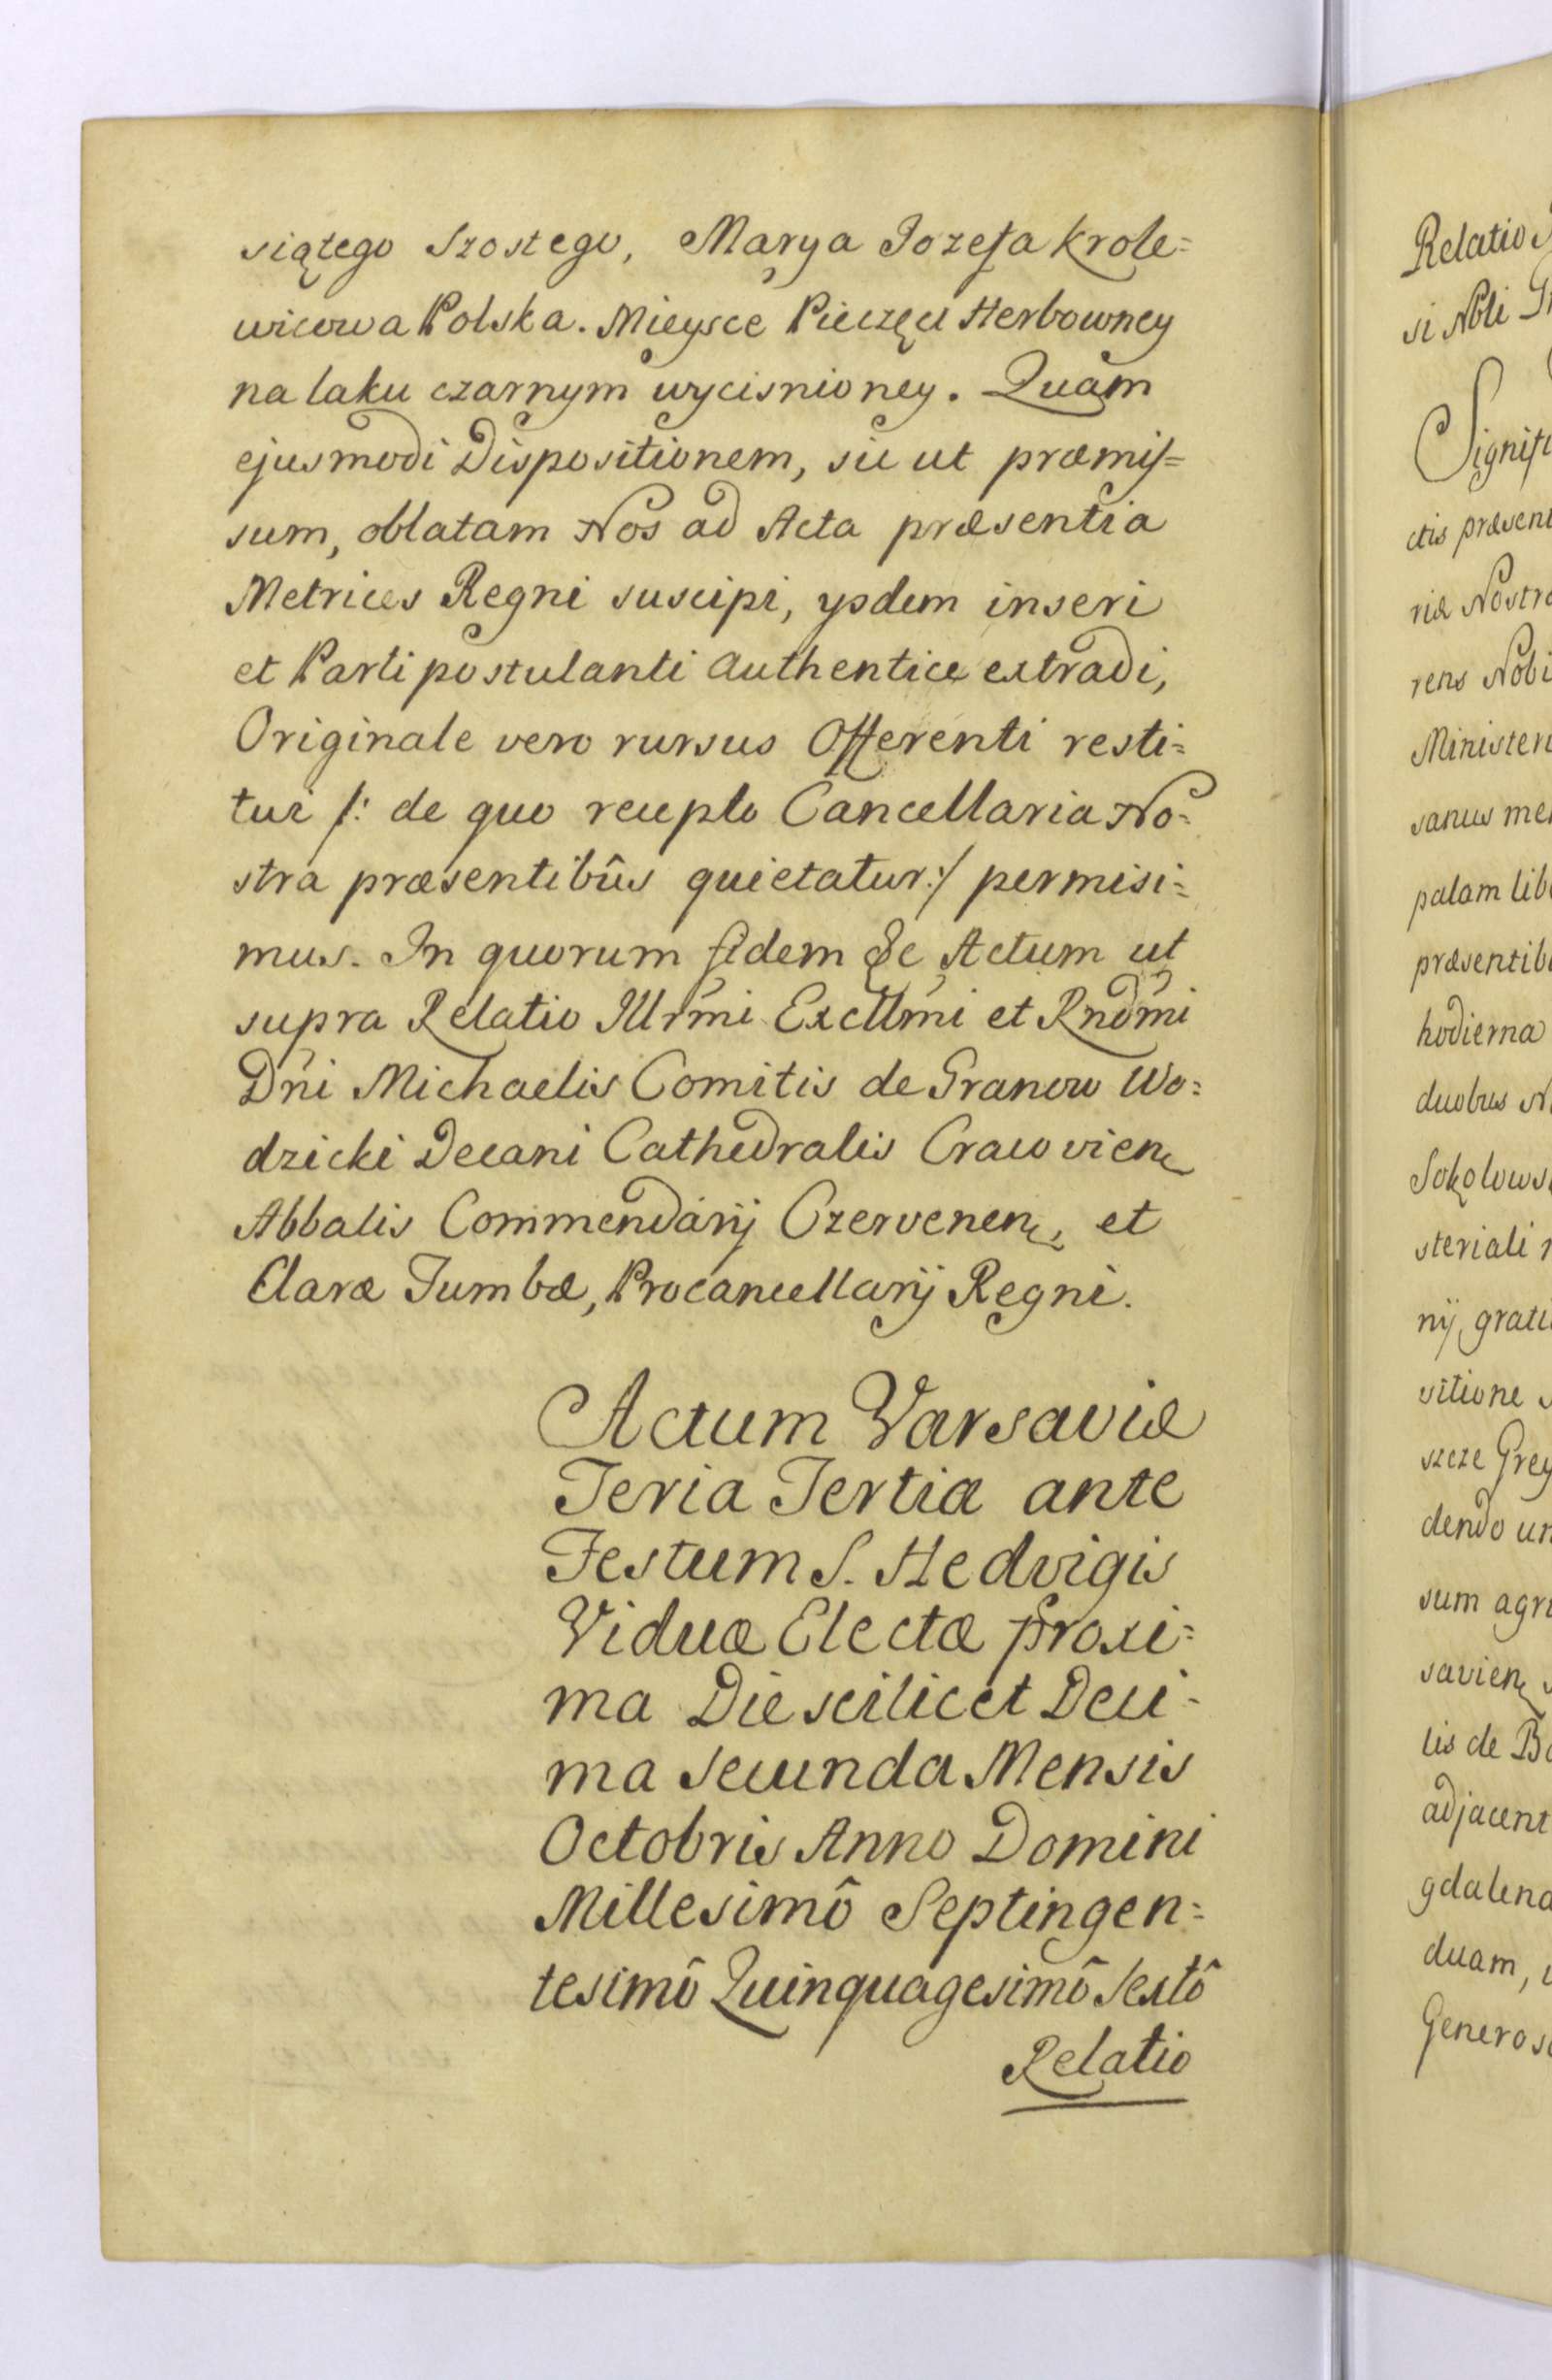 siątego Szostego, Marya Jozefa Krole=
wicowa Polska. Mieysce Pieczęci Herbowney
na laku czarnym wycisnioney. Quam
ejusmodi Dispositionem, sic ut præmis=
sum, oblatam Nos ad Acta præsentia
Metrices Regni suscipi, ysdem inseri
et Parti postulanti authentice extradi,
Originale vero rursus Offerenti resti=
tui /: de quo recepto Cancellaria No=
stra præsentibûs quietatur :/ permisi=
mus. In quorum fidem &c Actum ut
supra Relatio Illrmi Excllmi et Rndmi
Dni Michaelis Comitis de Granow Wo=
dzicki Decani Cathedralis Cracovien
Abbatis Commendarij Czervenen, et
Claræ Tumbæ, Procancellarij Regni.
Actum Varsaviæ
Feria Tertia ante
Festum S. Hedvigis
Viduæ Electæ proxi=
ma Die scilicet Deci-
ma Secunda Mensis
Octobris Anno Domini
Millesimô Septingen=
tesimô Quinquagesimô Sextô
Relatio
Relatio
si Nbli
ctis præsent
riæ Nostra
rens Nobi
Ministeri
sanus me
palam lib
præsentib
hodierna
duobus N
Sokolows
steriali
nij grati
sitione
szcze Grey
dendo un
sum agr
savien
lis de Bo
adjacent
gdalena
duam,
Generos